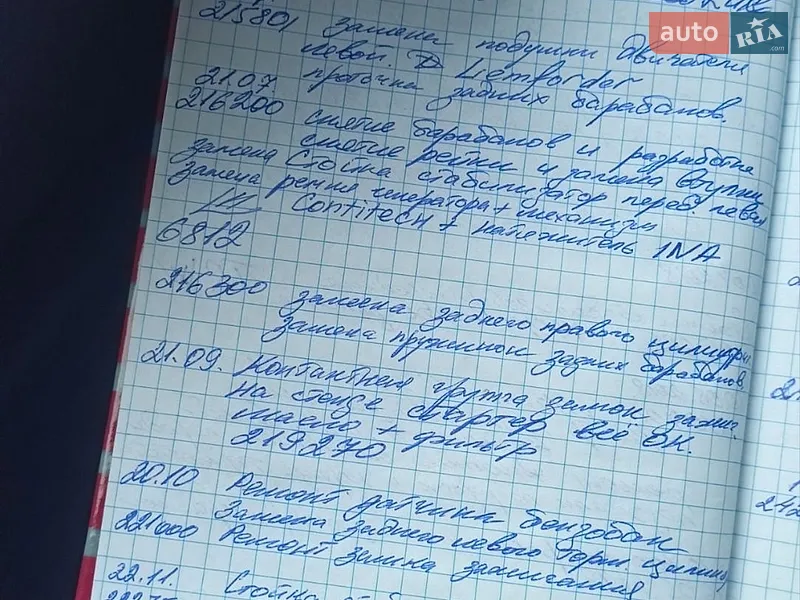 auto RIA .com
215801 замена подушки двигателя
левой. Lemforder
21.07 проточка задних барабанов.
216200 снятие барабанов и разработка
снятие рейки и замена втулки
замена Стойка стабилизатор перед. левая
замена ремня генератора + механизм
Contitech + натяжитель INA
6812
216300 замена заднего правого цилиндра
замена пружинок задних барабанов
21.09. Контактная группа замок зажиг.
на стенде стартер всё ОК.
масло + фильтр
219270
20.10 Ремонт датчика бензобак
Замена заднего левого торм цилинд
221000 Ремонт замка зажигания
22.11. Стойка
242